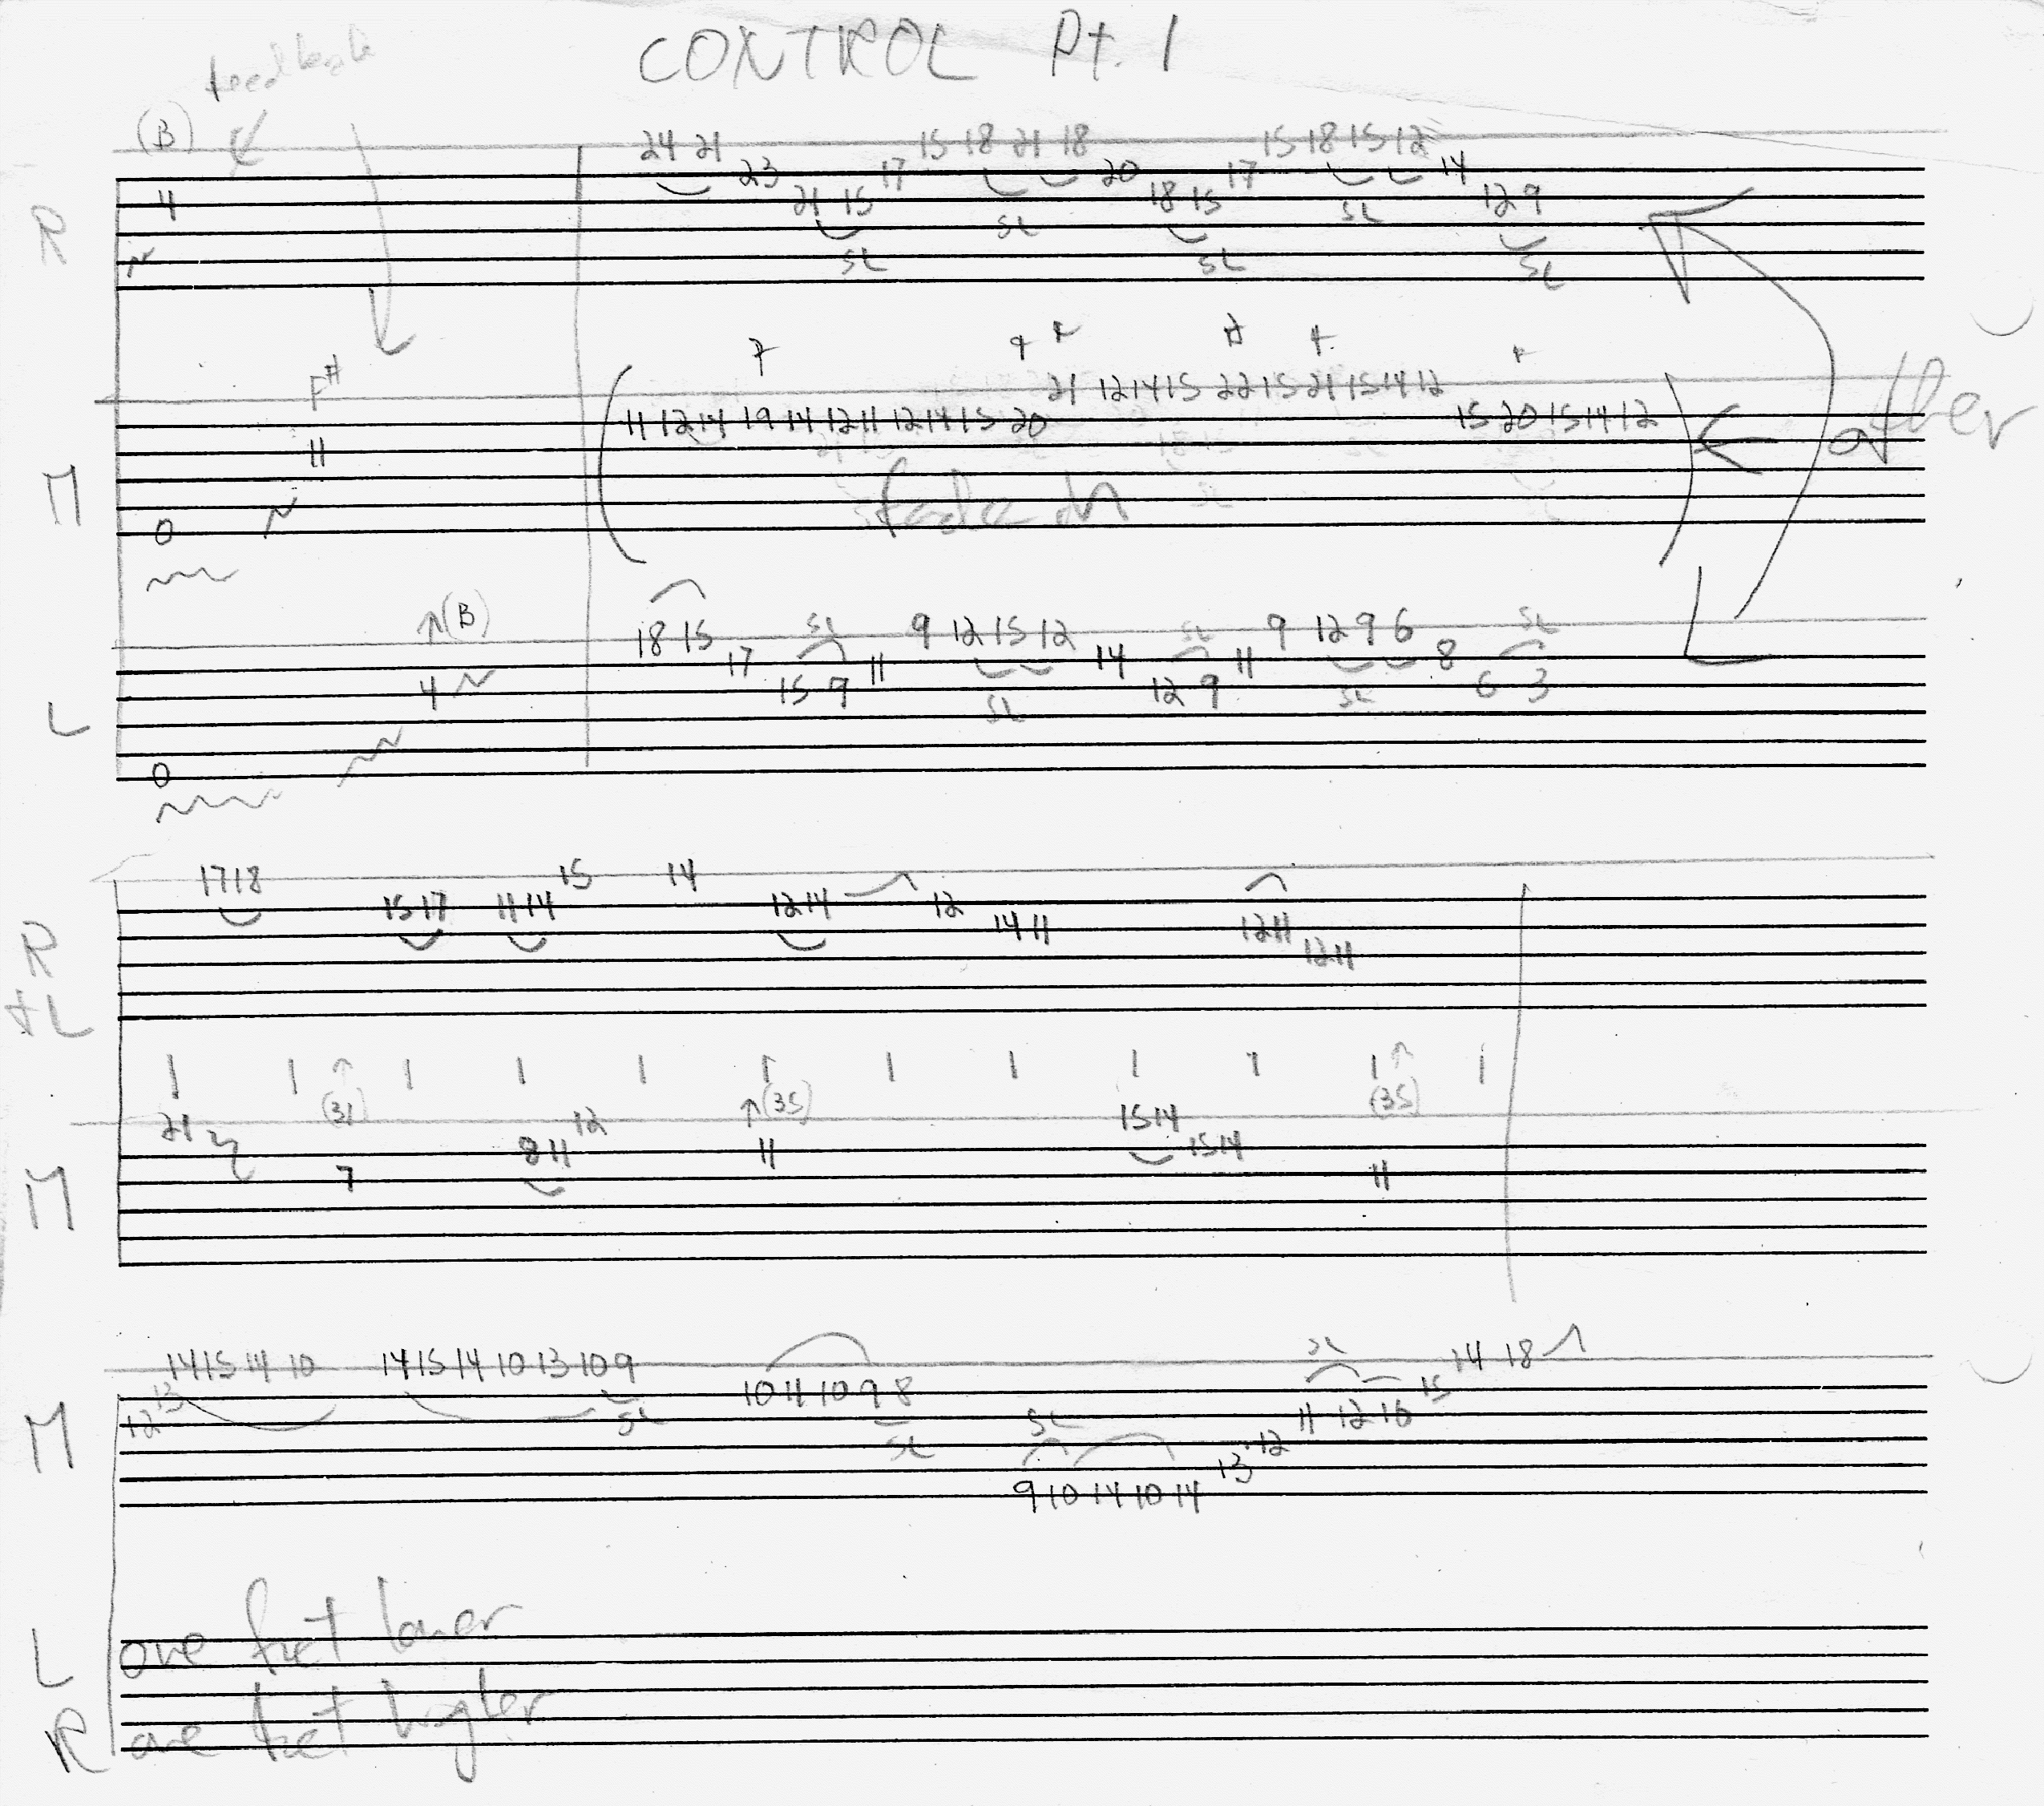 CONTROL Pt. 1
feedback
(B)
24 21 15 18 21 18 15 18 15 12
23 17 20 17 14
4 21 15 18 15 12 9
R
SL SL
SL SL SL
F#
21 12 14 15 22 15 21 15 14 12
11 12 14 19 14 12 11 12 14 15 20 15 20 15 14 12
after
11
M
fade in
0
(B) SL SL SL
18 15 9 12 15 12 9 12 9 6
17 11 14 11 8
4 15 9 12 9 6 3
L
SL SL
0
17 18 15 14
15 17 11 14 12 14 12
14 11 12 11
12 11
R
+L
(31) (35) (35)
21 12 15 14
8 11 11 15 14
7 11
M
SL
14 15 14 10 14 15 14 10 13 10 9 14 18
13 10 11 10 9 8 15
12 11 12 16
SL SL
SL 12
13
9 10 14 10 14
M
L one fret lower
R one fret higher